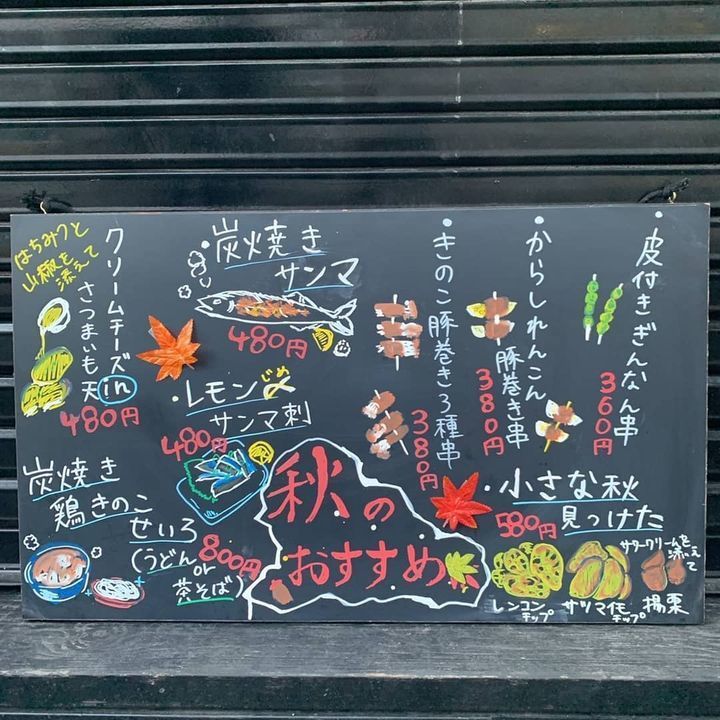 ・皮付きぎんなん串
360円
・からしれんこん
豚巻き串
380円
・きのこ豚巻き3種串
380円
・炭火焼き
サンマ
480円
・レモンじめ〆
サンマ刺
480円
クリームチーズin
さつまいも天
480円
はちみつと
山椒を
添えて
炭火焼き
鶏きのこ
せいろ
(うどん
or
茶そば)
800円
秋の
おすすめ
・小さな秋
見っけた
580円
レンコン
チップ
サツマイモ
チップ
サワークリームを
添えて
揚栗